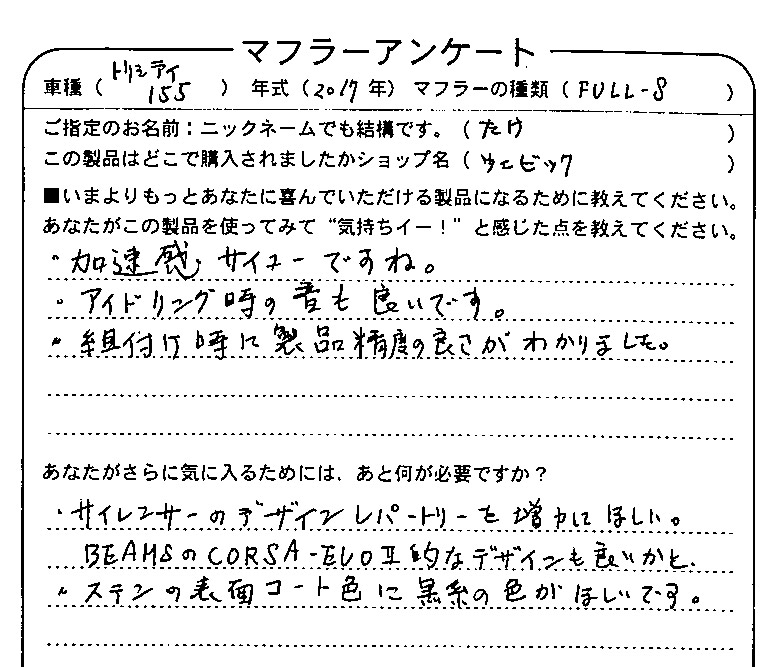 マフラーアンケート
車種（トリシティ155）年式（2017年）マフラーの種類（FULL-S）
ご指定のお名前：ニックネームでも結構です。（たけ）
この製品はどこで購入されましたかショップ名（ウェビック）
■いまよりもっとあなたに喜んでいただける製品になるために教えてください。
あなたがこの製品を使ってみて“気持ちイー！”と感じた点を教えてください。
・加速感、サイコーですね。
・アイドリング時の音も良いです。
・組付け時に製品精度の良さがわかりました。
あなたがさらに気に入るためには、あと何が必要ですか？
・サイレンサーのデザインレパートリーを増力にほしい。
BEAMSのCORSA-EVOⅡ的なデザインも良いかと、
・ステンの表面コート色に黒系の色がほしいです。